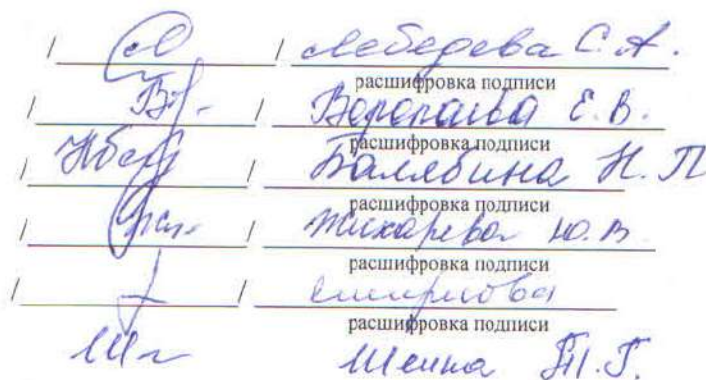 / / Лебедева С.А.
расшифровка подписи
/ Вт. / Воропаева Е.В.
расшифровка подписи
/ / Балябина Н.П
расшифровка подписи
/ / Жихарева Ю.В.
расшифровка подписи
/ / Смирнова
расшифровка подписи
Т.Г.